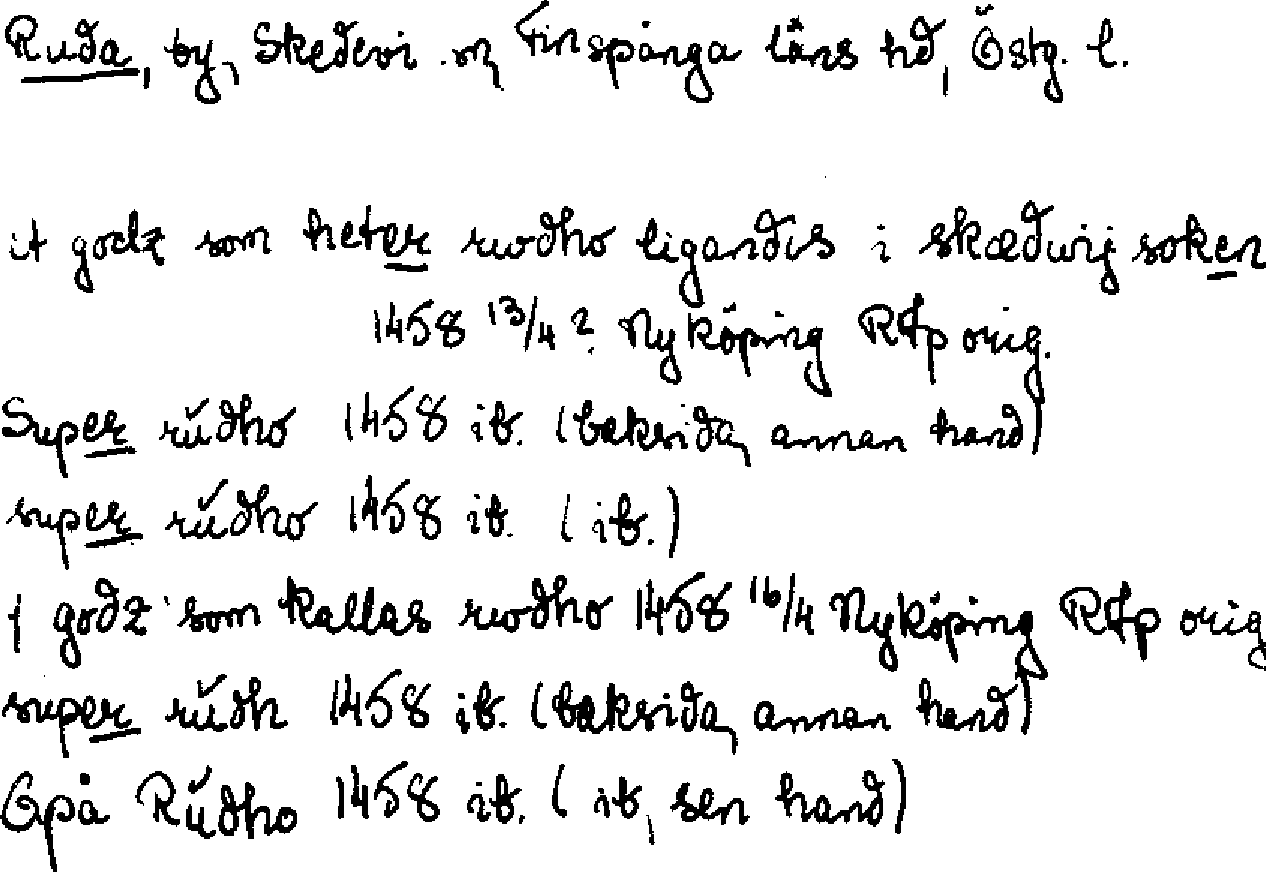 Ruda, by, Skedevi sn, Finspånga läns hd, Östg. l.
it godz som heter rwdho ligandis i skædwij soken
1458 13/4? Nyköping RAp orig.
Super rŭdho 1458 ib. (baksida, annan hand)
super rŭdho 1458 ib. (ib.)
j godz som kallas rwdho 1458 16/4 Nyköping RAp orig
super rŭdh 1458 ib. (baksida, annan hand)
Opå Rŭdho 1458 ib. (ib, sen hand)